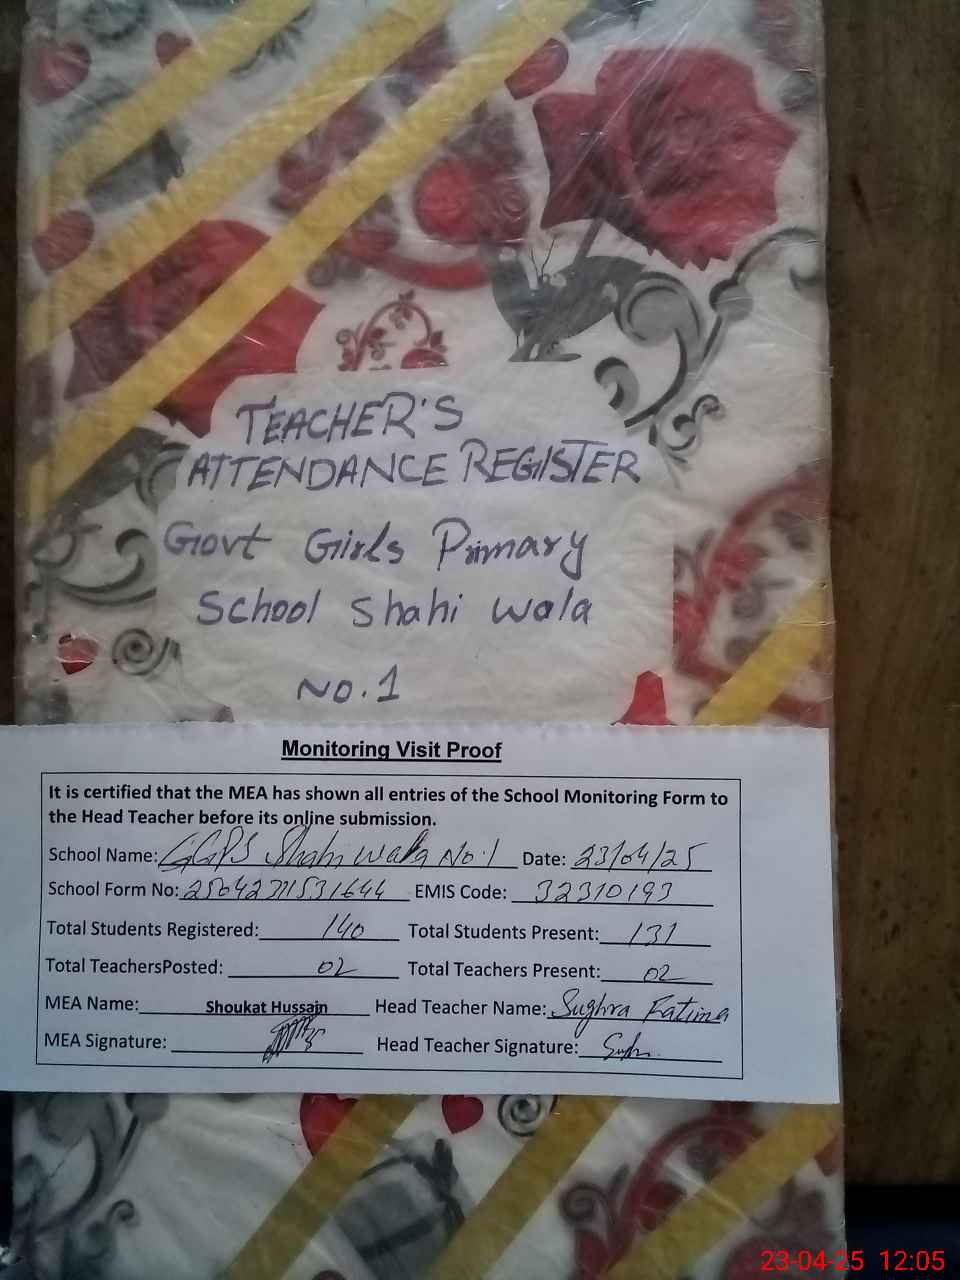 TEACHER'S
ATTENDANCE REGISTER
Govt Girls Primary
School Shahi wala
No.1
Monitoring Visit Proof
It is certified that the MEA has shown all entries of the School Monitoring Form to
the Head Teacher before its online submission.
School Name: GGPS Shahi wala No.1 Date: 23/04/25
School Form No: EMIS Code: 32310193
Total Students Registered: 140 Total Students Present: 131
Total TeachersPosted: 02 Total Teachers Present: 02
MEA Name: Shoukat Hussain Head Teacher Name: Sughra Fatima
MEA Signature: Head Teacher Signature:
23-04-25 12:05